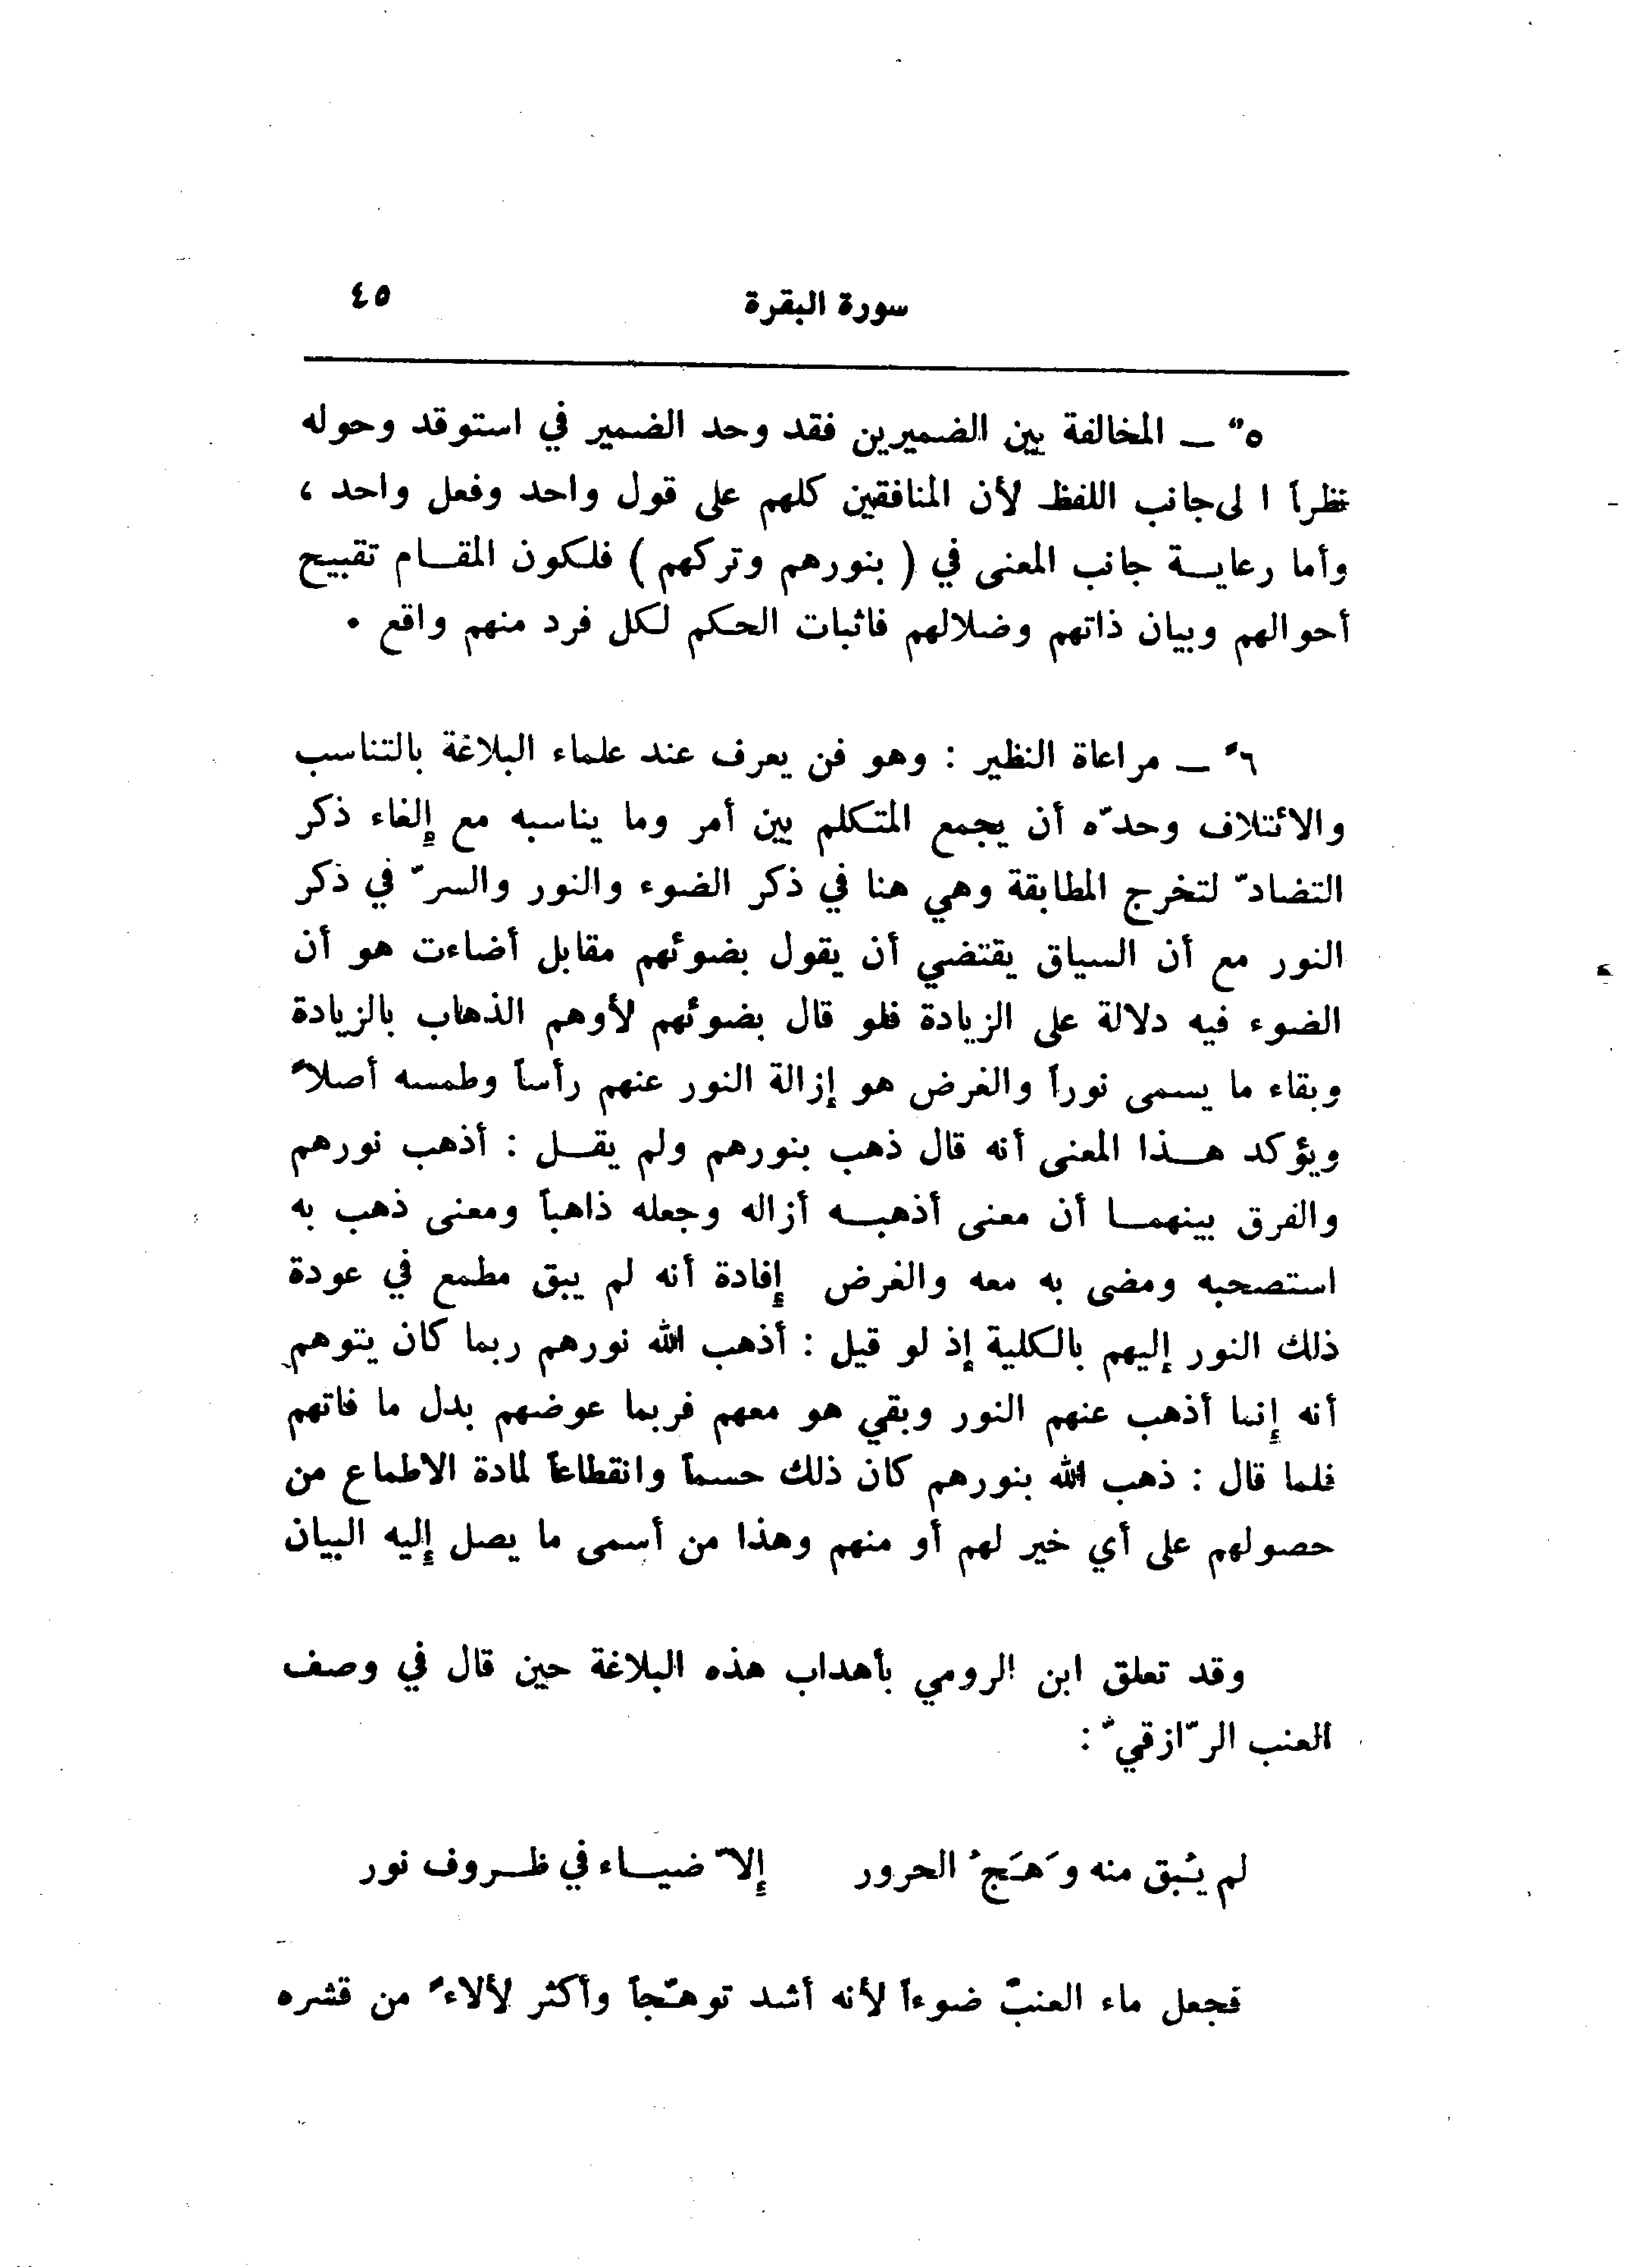 سورة البقرة ٤٥
٥ً — المخالفة بين الضميرين فقد وحد الضمير في استوقد وحوله
نظراً الى جانب اللفظ لأن المنافقين كلهم على قول واحد وفعل واحد ،
وأما رعايـة جانب المعنى في ( بنورهم وتركهم ) فلكون المقـام تقبيح
أحوالهم وبيان ذاتهم وضلالهم فاثبات الحكم لكل فرد منهم واقع •
٦ً — مراعاة النظير : وهو فن يعرف عند علماء البلاغة بالتناسب
والائتلاف وحدّه أن يجمع المتكلم بين أمر وما يناسبه مع إلغاء ذكر
التضادّ لتخرج المطابقة وهي هنا في ذكر الضوء والنور والسرّ في ذكر
النور مع أن السياق يقتضي أن يقول بضوئهم مقابل أضاءت هو أن
الضوء فيه دلالة على الزيادة فلو قال بضوئهم لأوهم الذهاب بالزيادة
وبقاء ما يسمى نوراً والغرض هو إزالة النور عنهم رأساً وطمسه أصلاً
ويؤكد هـذا المعنى أنه قال ذهب بنورهم ولم يقـل : أذهب نورهم
والفرق بينهمـا أن معنى أذهبـه أزاله وجعله ذاهباً ومعنى ذهب به
استصحبه ومضى به معه والغرض إفادة أنه لم يبق مطمع في عودة
ذلك النور إليهم بالكلية إذ لو قيل : أذهب الله نورهم ربما كان يتوهم
أنه إنما أذهب عنهم النور وبقي هو معهم فربما عوضهم بدل ما فاتهم
فلما قال : ذهب الله بنورهم كان ذلك حسماً وانقطاعاً لمادة الاطماع من
حصولهم على أي خير لهم أو منهم وهذا من أسمى ما يصل إليه البيان
وقد تعلق ابن الرومي بأهداب هذه البلاغة حين قال في وصف
العنب الرّازقيّ :
لم يُبق منه وَهَجُ الحرور إلاّ ضيـاء في ظـروف نور
فجعل ماء العنبّ ضوءاً لأنه أشد توهّجاً وأكثر لألاءً من قشره